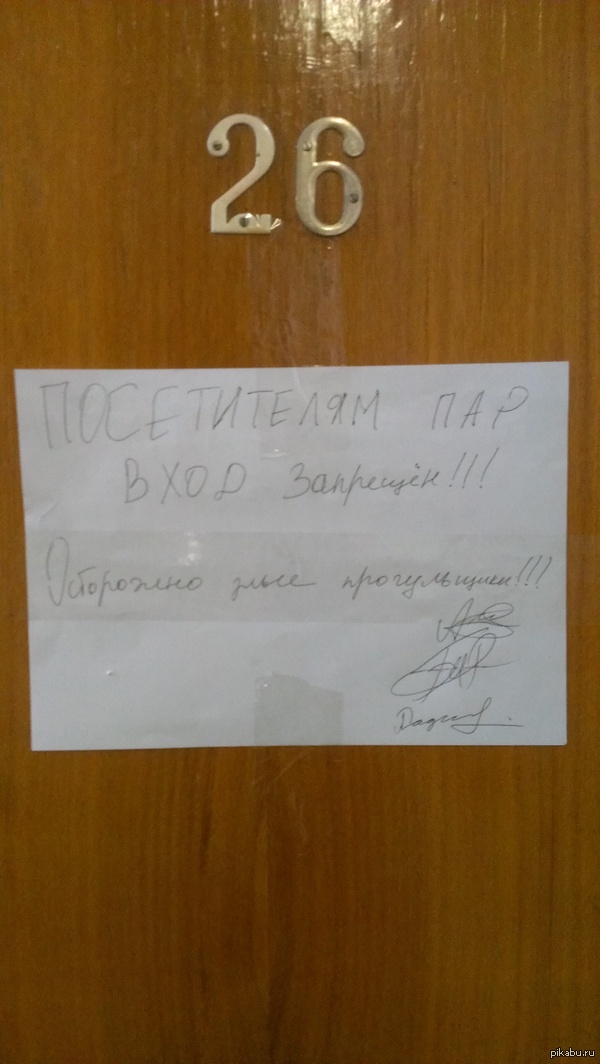 26
ПОСЕТИТЕЛЯМ ПАР
ВХОД Запрещён!!!
Осторожно злые прогульщики!!!
pikabu.ru